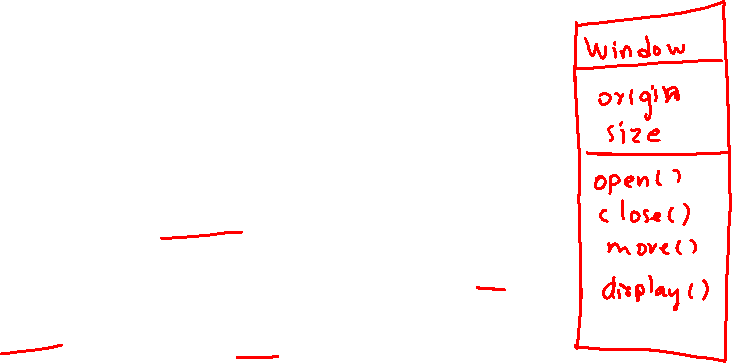 Window
origin
size
open()
close()
move()
display()